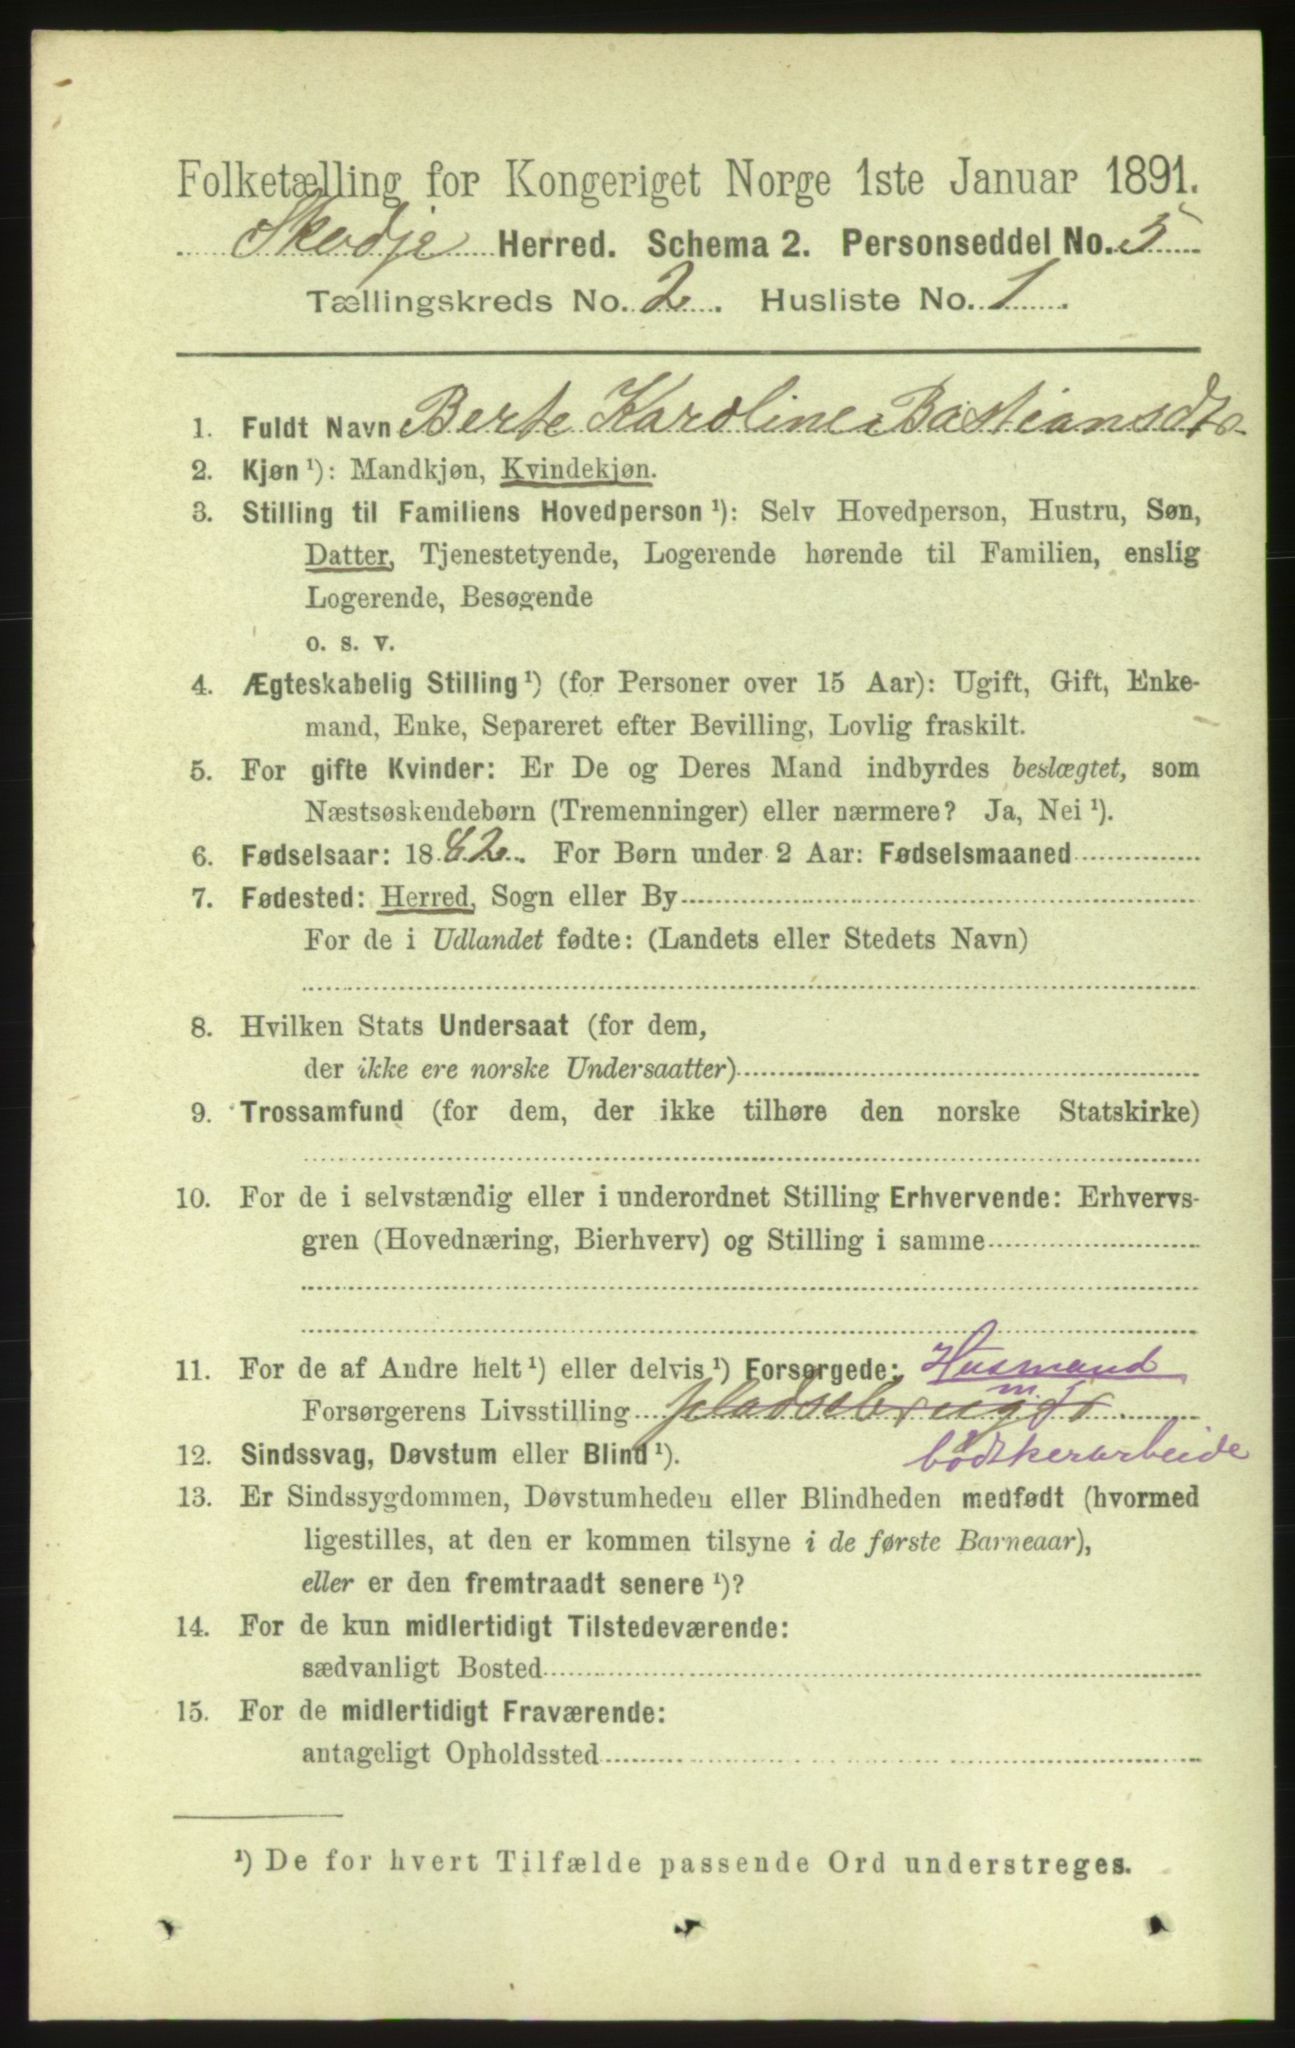 Folketælling for Kongeriget Norge 1ste Januar 1891.
Skodje Herred. Schema 2. Personseddel No. 5
Tællingskreds No. 2. Husliste No. 1.
1. Fuldt Navn Berte Karoline Bastiansdtr
2. Kjøn ¹): Mandkjøn, Kvindekjøn.
3. Stilling til Familiens Hovedperson ¹): Selv Hovedperson, Hustru, Søn,
Datter, Tjenestetyende, Logerende hørende til Familien, enslig
Logerende, Besøgende
o. s. v.
4. Ægteskabelig Stilling ¹) (for Personer over 15 Aar): Ugift, Gift, Enke-
mand, Enke, Separeret efter Bevilling, Lovlig fraskilt.
5. For gifte Kvinder: Er De og Deres Mand indbyrdes beslægtet, som
Næstsøskendebørn (Tremenninger) eller nærmere? Ja, Nei ¹).
6. Fødselsaar: 1882. For Børn under 2 Aar: Fødselsmaaned
7. Fødested: Herred, Sogn eller By
For de i Udlandet fødte: (Landets eller Stedets Navn)
8. Hvilken Stats Undersaat (for dem,
der ikke ere norske Undersaatter)
9. Trossamfund (for dem, der ikke tilhøre den norske Statskirke)
10. For de i selvstændig eller i underordnet Stilling Erhvervende: Erhvervs-
gren (Hovednæring, Bierhverv) og Stilling i samme
11. For de af Andre helt ¹) eller delvis ¹) Forsørgede: Husmand
m. j.
Forsørgerens Livsstilling pladsebruger
bødtkerarbeide
12. Sindssvag, Døvstum eller Blind ¹).
13. Er Sindssygdommen, Døvstumheden eller Blindheden medfødt (hvormed
ligestilles, at den er kommen tilsyne i de første Barneaar),
eller er den fremtraadt senere ¹)?
14. For de kun midlertidigt Tilstedeværende:
sædvanligt Bosted
15. For de midlertidigt Fraværende:
antageligt Opholdssted
¹) De for hvert Tilfælde passende Ord understreges.